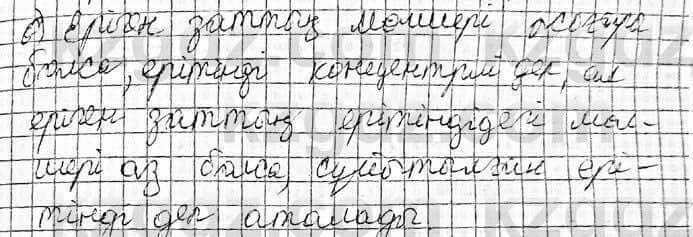 ә) Еріген заттың мөлшері жоғары
болса, ерітінді концентрлі деп, ал
еріген заттың ерітіндідегі мөл-
шері аз болса, сұйытылған ері-
тінді деп аталады.